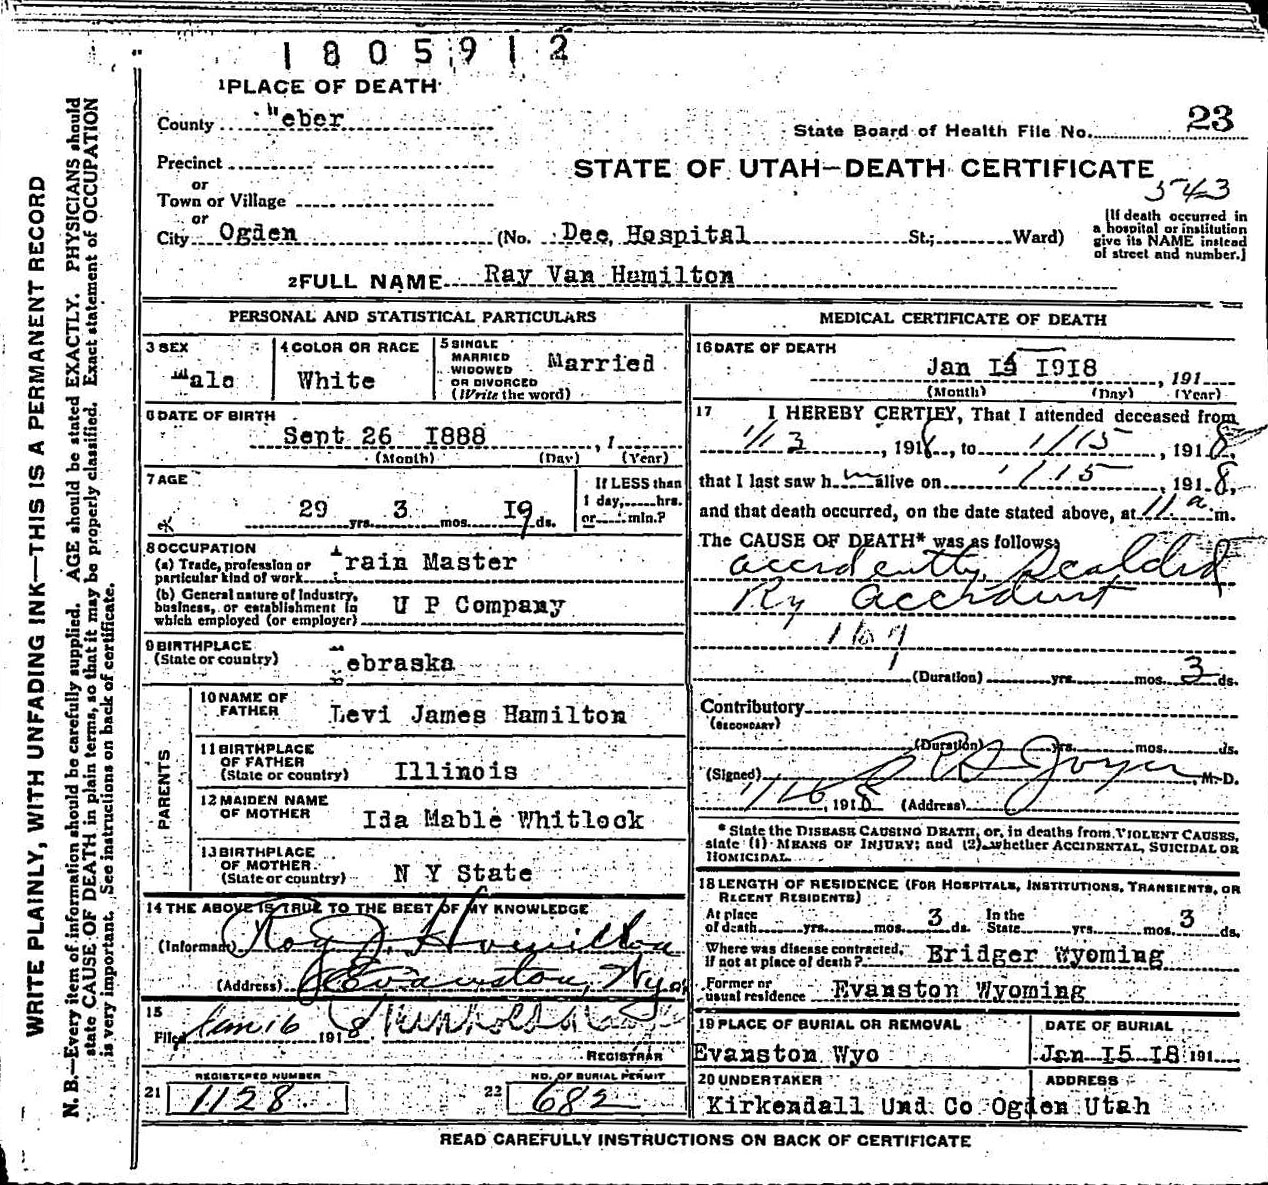 1805912
1 PLACE OF DEATH
County Weber
State Board of Health File No. 23
Precinct
STATE OF UTAH—DEATH CERTIFICATE
or
543
Town or Village
or
City Ogden (No. Dee Hospital St.; Ward)
[If death occurred in
a hospital or institution
give its NAME instead
of street and number.]
2 FULL NAME Ray Van Hamilton
WRITE PLAINLY, WITH UNFADING INK—THIS IS A PERMANENT RECORD
N. B.—Every item of information should be carefully supplied. AGE should be stated EXACTLY. PHYSICIANS should
state CAUSE OF DEATH in plain terms, so that it may be properly classified. Exact statement of OCCUPATION
is very important. See instructions on back of certificate.
PERSONAL AND STATISTICAL PARTICULARS
3 SEX
Male
4 COLOR OR RACE
White
5 SINGLE
MARRIED
WIDOWED
OR DIVORCED
(Write the word)
Married
6 DATE OF BIRTH
Sept 26 1888 , 1
(Month) (Day) (Year)
7 AGE
29 yrs. 3 mos. 19 ds.
If LESS than
1 day, hrs.
or min.?
8 OCCUPATION
(a) Trade, profession or
particular kind of work
Train Master
(b) General nature of Industry,
business, or establishment in
which employed (or employer)
U P Company
9 BIRTHPLACE
(State or country)
Nebraska
PARENTS
10 NAME OF
FATHER
Levi James Hamilton
11 BIRTHPLACE
OF FATHER
(State or country)
Illinois
12 MAIDEN NAME
OF MOTHER
Ida Mable Whitlock
13 BIRTHPLACE
OF MOTHER
(State or country)
N Y State
14 THE ABOVE IS TRUE TO THE BEST OF MY KNOWLEDGE
(Informant) Roy J. Hamilton
(Address) Evanston, Wyo
15
Filed Jan 16 1918
REGISTRAR
21 REGISTERED NUMBER
1128
22 NO. OF BURIAL PERMIT
682
MEDICAL CERTIFICATE OF DEATH
16 DATE OF DEATH
Jan 15 1918 , 191
(Month) (Day) (Year)
17 I HEREBY CERTIFY, That I attended deceased from
1/13 , 1918, to 1/15 , 1918,
that I last saw h m alive on 1/15 , 1918,
and that death occurred, on the date stated above, at 11 a m.
The CAUSE OF DEATH* was as follows:
accidently scalded
Ry accident
169
(Duration) yrs. mos. 3 ds.
Contributory
(SECONDARY)
(Duration) yrs. mos. ds.
(Signed) Joyce, M. D.
1/16, 1918 (Address)
* State the DISEASE CAUSING DEATH, or, in deaths from VIOLENT CAUSES,
state (1) MEANS OF INJURY; and (2) whether ACCIDENTAL, SUICIDAL OR
HOMICIDAL.
18 LENGTH OF RESIDENCE (FOR HOSPITALS, INSTITUTIONS, TRANSIENTS, OR
RECENT RESIDENTS)
At place
of death yrs. mos. 3 ds.
In the
State yrs. mos. 3 ds.
Where was disease contracted,
if not at place of death? Bridger Wyoming
Former or
usual residence Evanston Wyoming
19 PLACE OF BURIAL OR REMOVAL
Evanston Wyo
DATE OF BURIAL
Jan 15 18 191
20 UNDERTAKER
ADDRESS
Kirkendall Und Co Ogden Utah
READ CAREFULLY INSTRUCTIONS ON BACK OF CERTIFICATE